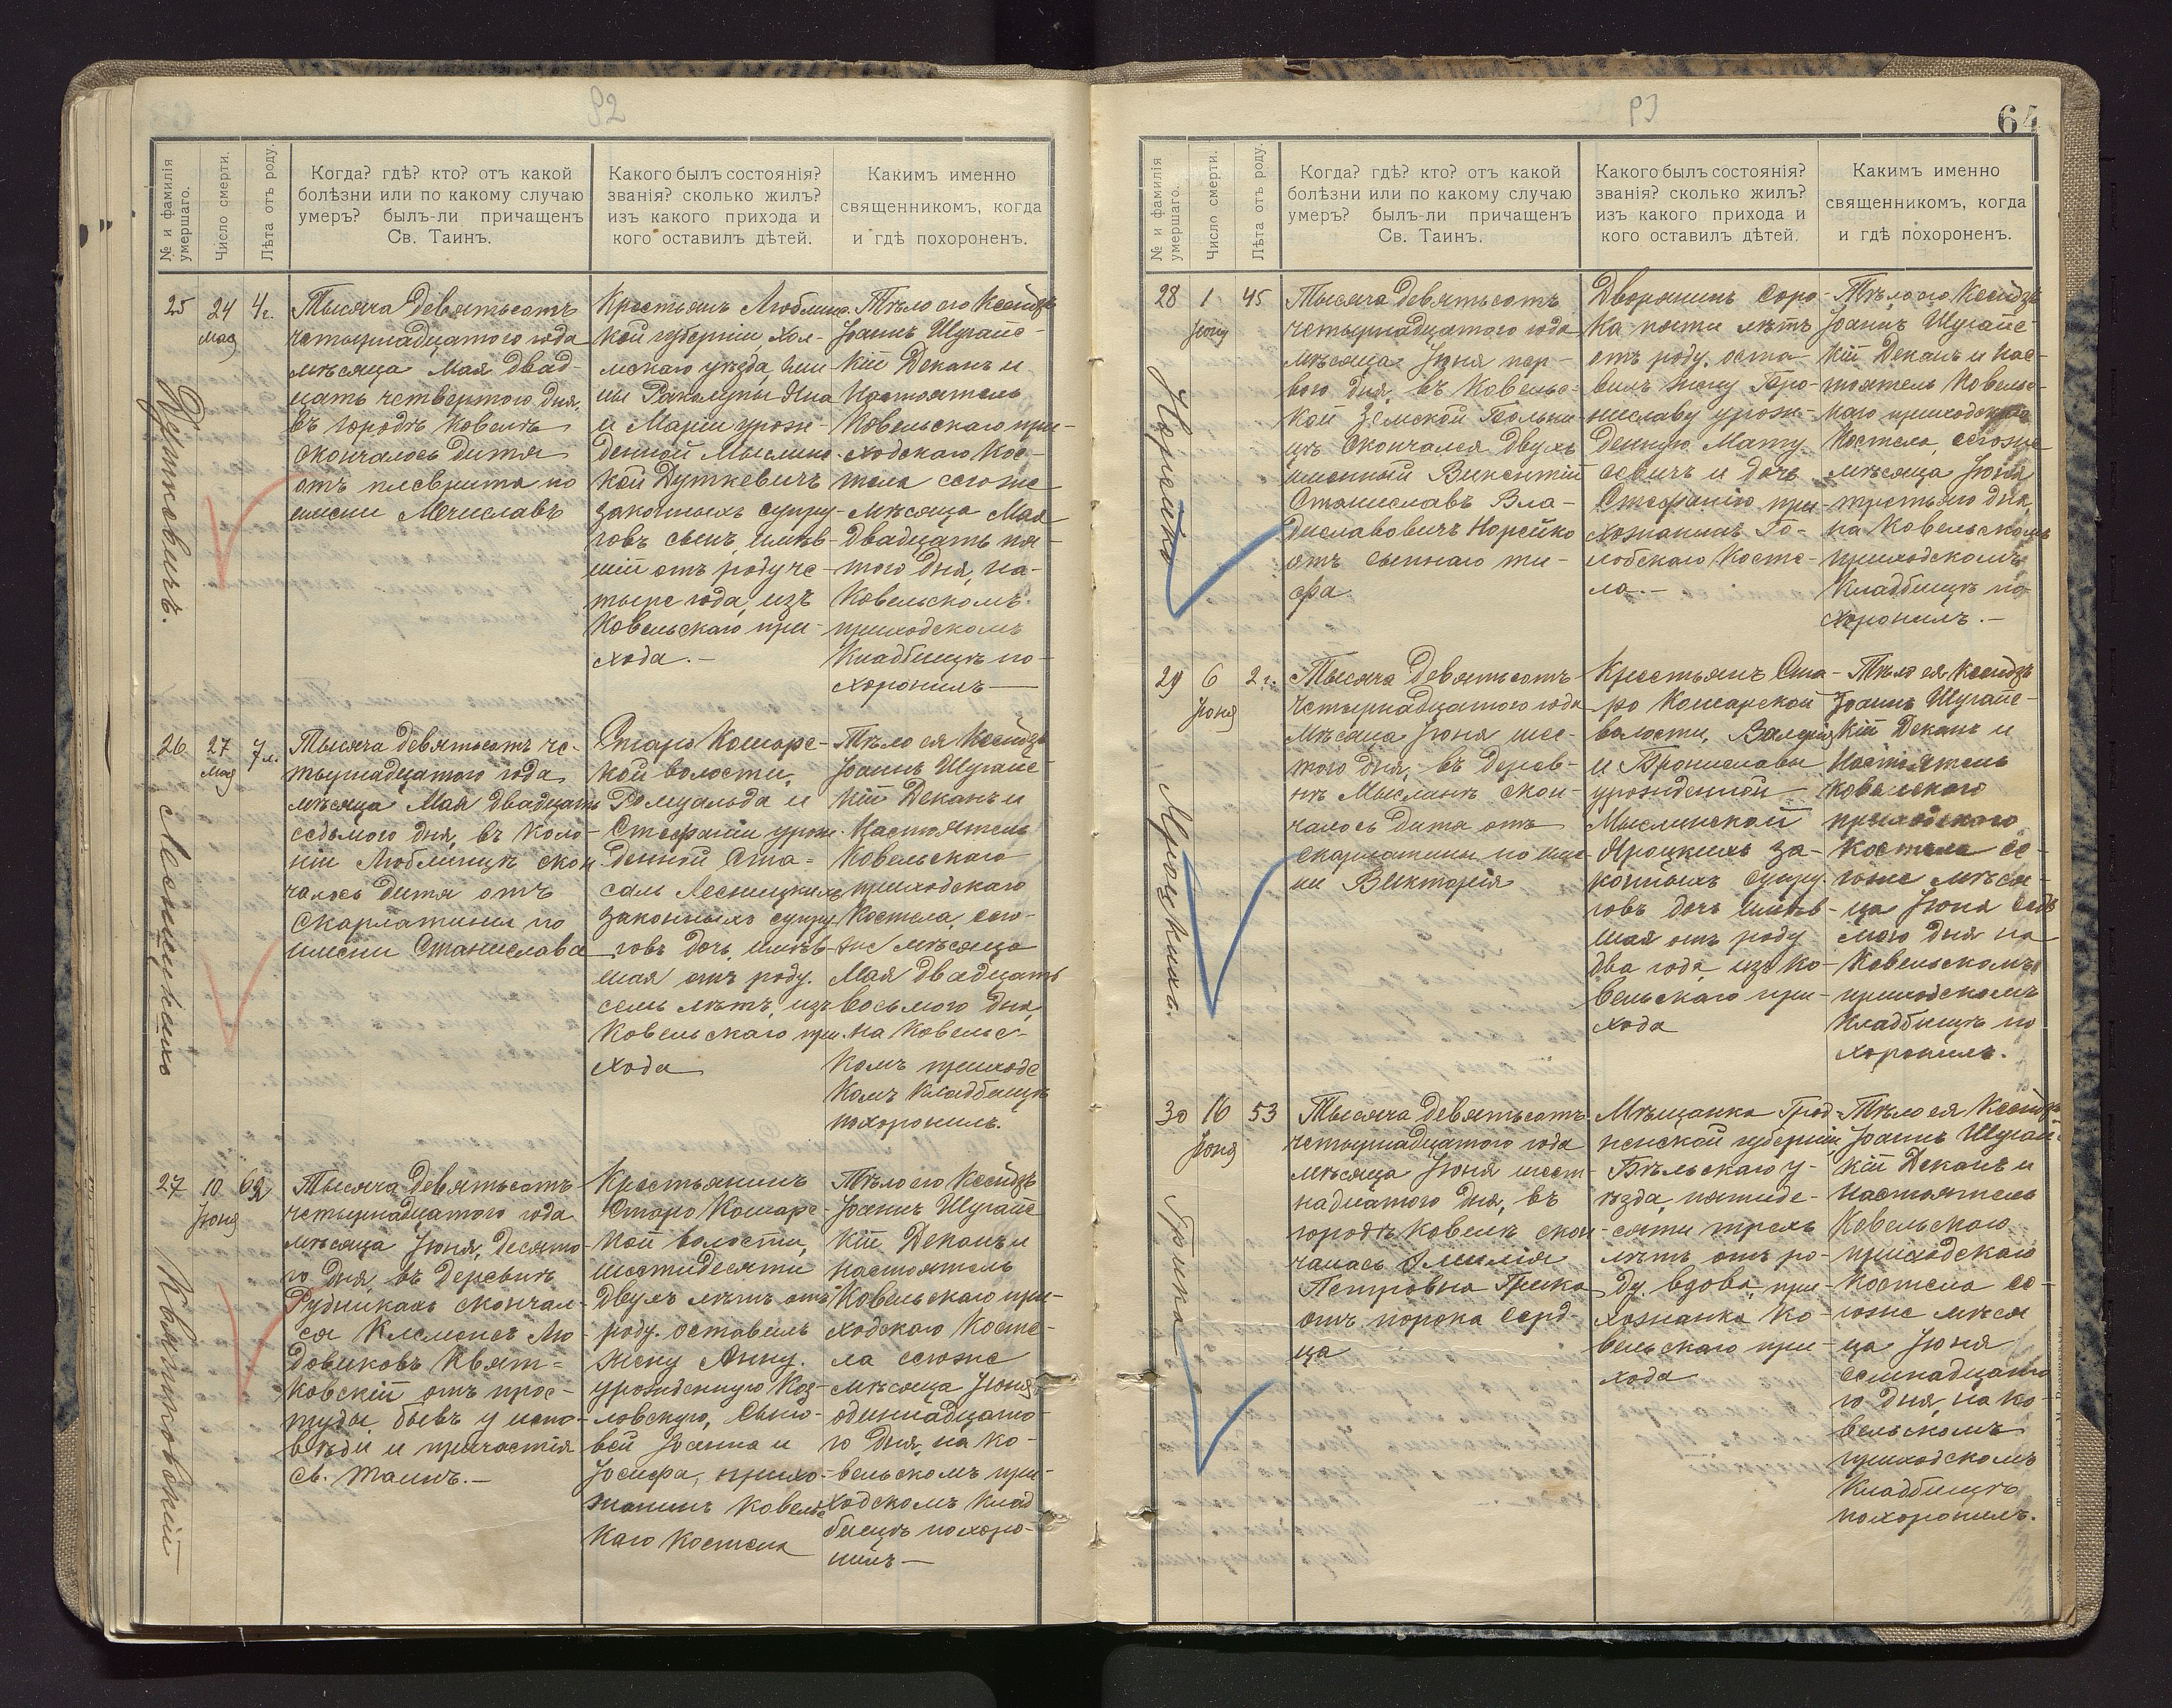 92
№ и фамилія умершаго.
Число смерти.
Лѣта отъ роду.
Когда? гдѣ? кто? отъ какой
болѣзни или по какому случаю
умеръ? былъ-ли причащенъ
Св. Таинъ.
Какого былъ состоянія?
званія? сколько жилъ?
изъ какого прихода и
кого оставилъ дѣтей.
Какимъ именно
священникомъ, когда
и гдѣ похороненъ.
25
Дуткевичъ.
24
мая
4 г.
Тысяча девятьсотъ
четырнадцатого года
мѣсяца Мая двад-
цать четвертого дня,
въ городѣ Ковелѣ
скончалось дитя
отъ плеврита по
имени Мечиславъ
Крестьянъ Люблинс-
кой губерніи, Хол-
мскаго уѣзда, гми
ны Раколупы Яна
и Маріи урож-
денной Мыслинс
кой Дуткевичъ
законныхъ супру-
говъ сынъ, имѣв-
шій отъ роду че-
тыре года, изъ
Ковельскаго при-
хода.-
Тѣло его Ксендзъ
Іоаннъ Шугайс-
кій Деканъ и
Настоятель
Ковельскаго при-
ходскаго Кос-
тела сегоже
мѣсяца Мая
двадцать пя-
того дня, на
Ковельскомъ
приходскомъ
Кладбищѣ по-
хоронилъ
26
Лесницкихъ
27
мая
7 л.
Тысяча девятьсотъ че-
тырнадцатого года
мѣсяца Мая двадцать
седьмого дня, въ коло-
ніи Люблинцѣ скон
чалось дитя отъ
скарлатины по
имени Станислава
Старо Кошарс-
кой волости,
Ромуальда и
Стефаніи урож-
денной Ста-
сапь Лесницкихъ
законныхъ супру
говъ дочь, имѣв-
шая отъ роду.
семь лѣтъ, изъ
Ковельскаго при-
хода
Тѣло ея Ксендзъ
Іоаннъ Шугайс-
кій Деканъ и
Настоятель
Ковельскаго
приходскаго
Костела, сего-
же мѣсяца
Мая двадцать
восьмого дня
на Ковельс-
комъ приходс
комъ Кладбищѣ
похоронилъ.
27
Квятковскій
10
Іюня
62
Тысяча девятьсотъ
четырнадцатого года
мѣсяца Іюня, десято-
го дня, въ деревнѣ
Рудникахъ скончал-
ся Клеменсъ Лю-
двиковъ Квят-
ковскій отъ прос-
туды бывъ у испо-
вѣди и причастія
Св. Таинъ.-
Крестьянинъ
Старо Кошарс-
кой волости,
шестидесяти
двухъ лѣтъ отъ
роду. оставилъ
жену Анну.
урожденную Коз-
ловскую, сыно-
вей Іоанна и
Іосифа, прихо-
жанинъ Ковельс
каго Костела
Тѣло его Ксендзъ
Іоаннъ Шугайс
кій Деканъ и
настоятель
Ковельскаго при-
ходскаго Косте-
ла сегоже
мѣсяца Іюня
одиннадцато-
го дня, на Ко-
вельскомъ при-
ходскомъ клад
бищѣ похоро-
нилъ
93
64
№ и фамилія умершаго.
Число смерти.
Лѣта отъ роду.
Когда? гдѣ? кто? отъ какой
болѣзни или по какому случаю
умеръ? былъ-ли причащенъ
Св. Таинъ.
Какого былъ состоянія?
званія? сколько жилъ?
изъ какого прихода и
кого оставилъ дѣтей.
Какимъ именно
священникомъ, когда
и гдѣ похороненъ.
28
Норейко
1
Іюня
45
Тысяча девятьсотъ
четырнадцатого года
мѣсяца Іюня пер-
вого дня, въ Ковельс-
кой Земской Больни-
цѣ скончался двухъ
именный Викентій
Станиславъ Вла-
диславовичъ Норейко
отъ сыпнаго ти-
фа.
Дворянинъ соро-
ка пяти лѣтъ
отъ роду, оста-
вилъ жену Бро-
ниславу урож-
денную Мату
севичъ и дочь
Стефанію при-
хожанинъ Го-
лобскаго Косте-
ла.-
Тѣло его Ксендзъ
Іоаннъ Шугайс-
кій Деканъ и Нас-
тоятель Ковельс-
каго приходскаго
Костела, сегоже
мѣсяца Іюня
третьяго дня
на Ковельскомъ
приходскомъ
Кладбищѣ по-
хоронилъ.-
29
Яроцкихъ.
6
Іюня
2 г.
Тысяча девятьсотъ
четырнадцатого года
Мѣсяца Іюня шес-
того дня, въ дерев-
нѣ Мыслинѣ скон-
чалось дитя отъ
скарлатины по име-
ни Викторія
Крестьянъ Ста-
ро Кошарской
волости, Валерія
и Брониславы
урожденной
Мыслинской
Яроцкихъ за-
конныхъ супру-
говъ дочь имѣв-
шая отъ роду
два года изъ Ко-
вельскаго при-
хода
Тѣло ея Ксендзъ
Іоаннъ Шугайс-
кій Деканъ и
Настоятель
Ковельскаго
приходскаго
Костела се-
гоже мѣся-
ца Іюня седь
мого дня на
Ковельскомъ
приходскомъ
Кладбищѣ по
хоронилъ.
30
Грика
16
Іюня
53
Тысяча девятьсотъ
четырнадцатого года
мѣсяца Іюня шест-
надцатого дня, въ
городѣ Ковелѣ скон-
чалась Эмилія
Петровна Грика
отъ порока серд-
ца
Мѣщанка Грод-
ненской губерніи,
Бѣльскаго у-
ѣзда, пятиде-
сяти трехъ
лѣтъ отъ ро-
ду. вдова, при-
хожанка Ко-
вельскаго при-
хода
Тѣло ея Ксендзъ
Іоаннъ Шугайс-
кій Деканъ и
настоятель
Ковельскаго
приходскаго
Костела се-
гоже мѣся
ца Іюня
семнадцато
го дня, на Ко-
вельскомъ
приходскомъ
Кладбищѣ
похоронилъ.